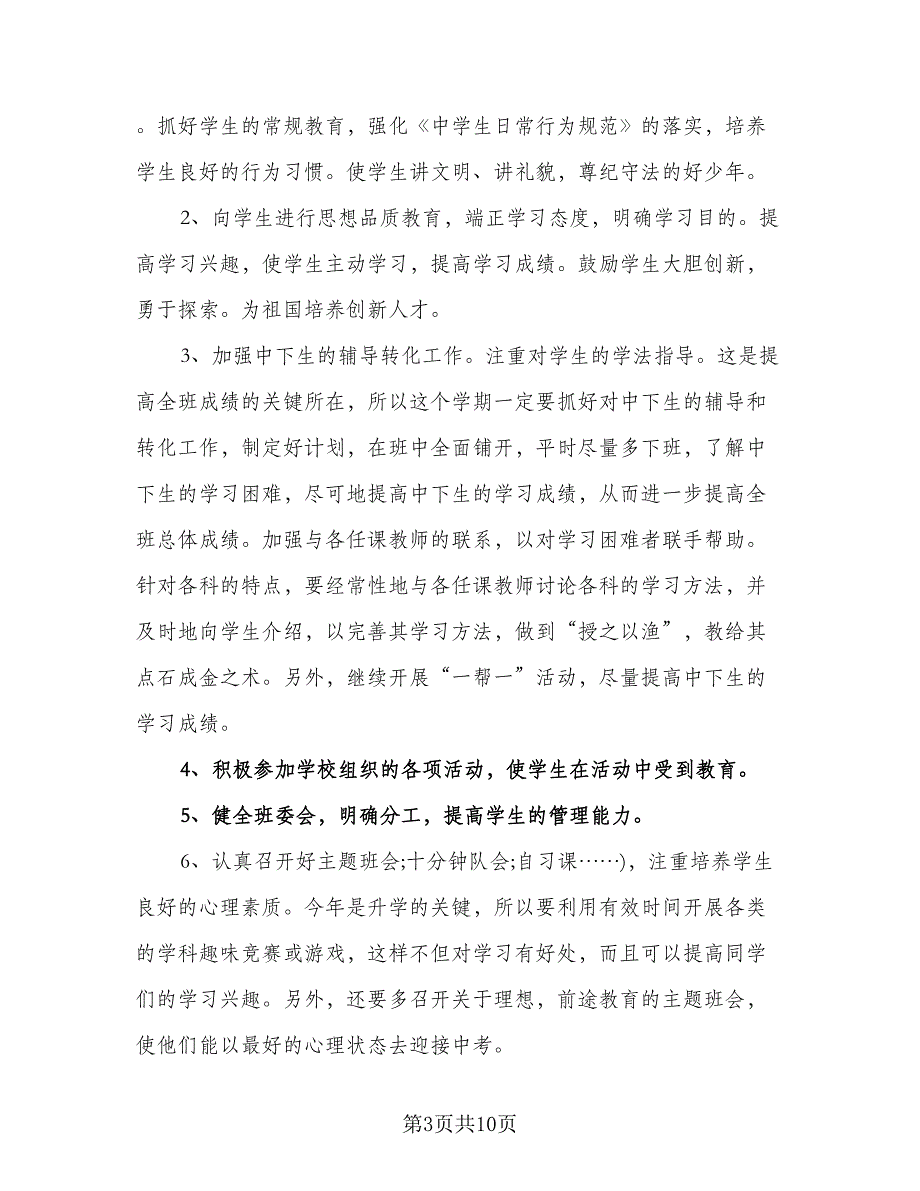 。抓好学生的常规教育，强化《中学生日常行为规范》的落实，培养
学生良好的行为习惯。使学生讲文明、讲礼貌，尊纪守法的好少年。
2、向学生进行思想品质教育，端正学习态度，明确学习目的。提
高学习兴趣，使学生主动学习，提高学习成绩。鼓励学生大胆创新，
勇于探索。为祖国培养创新人才。
3、加强中下生的辅导转化工作。注重对学生的学法指导。这是提
高全班成绩的关键所在，所以这个学期一定要抓好对中下生的辅导和
转化工作，制定好计划，在班中全面铺开，平时尽量多下班，了解中
下生的学习困难，尽可地提高中下生的学习成绩，从而进一步提高全
班总体成绩。加强与各任课教师的联系，以对学习困难者联手帮助。
针对各科的特点，要经常性地与各任课教师讨论各科的学习方法，并
及时地向学生介绍，以完善其学习方法，做到“授之以渔”，教给其
点石成金之术。另外，继续开展“一帮一”活动，尽量提高中下生的
学习成绩。
4、积极参加学校组织的各项活动，使学生在活动中受到教育。
5、健全班委会，明确分工，提高学生的管理能力。
6、认真召开好主题班会;十分钟队会;自习课……)，注重培养学生
良好的心理素质。今年是升学的关键，所以要利用有效时间开展各类
的学科趣味竞赛或游戏，这样不但对学习有好处，而且可以提高同学
们的学习兴趣。另外，还要多召开关于理想，前途教育的主题班会，
使他们能以最好的心理状态去迎接中考。
第3页共10页